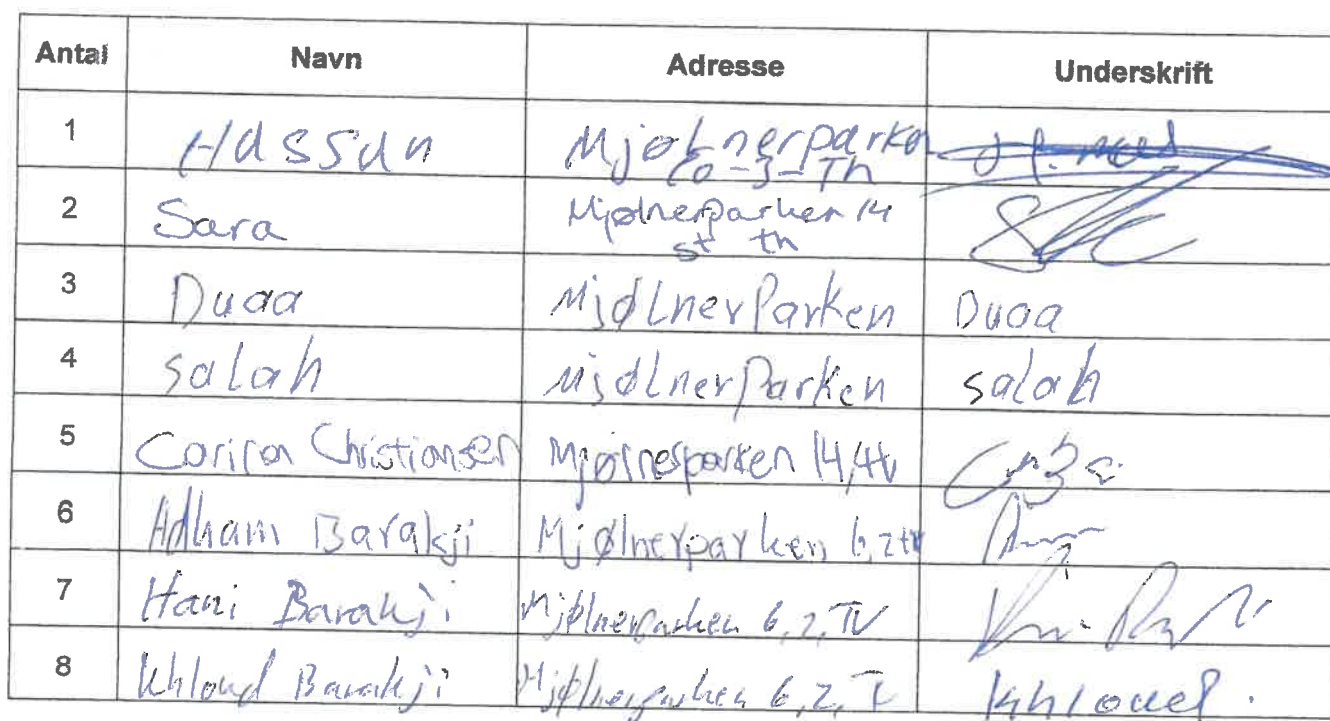 Antal Navn Adresse Underskrift
1 Hassan Mjølnerparken
-3-Th
2 Sara Mjølnerparken 14
st th
3 Duaa MjølnerParken Duaa
4 salah MjølnerParken salah
5 Christiansen 14,4tv
6 Adham Barakji Mjølnerparken 6,2tv
7 Hani Barakji Mjølnerparken 6,2,TV
8 Khloud Barakji Mjølnerparken 6,2,T Khloued.